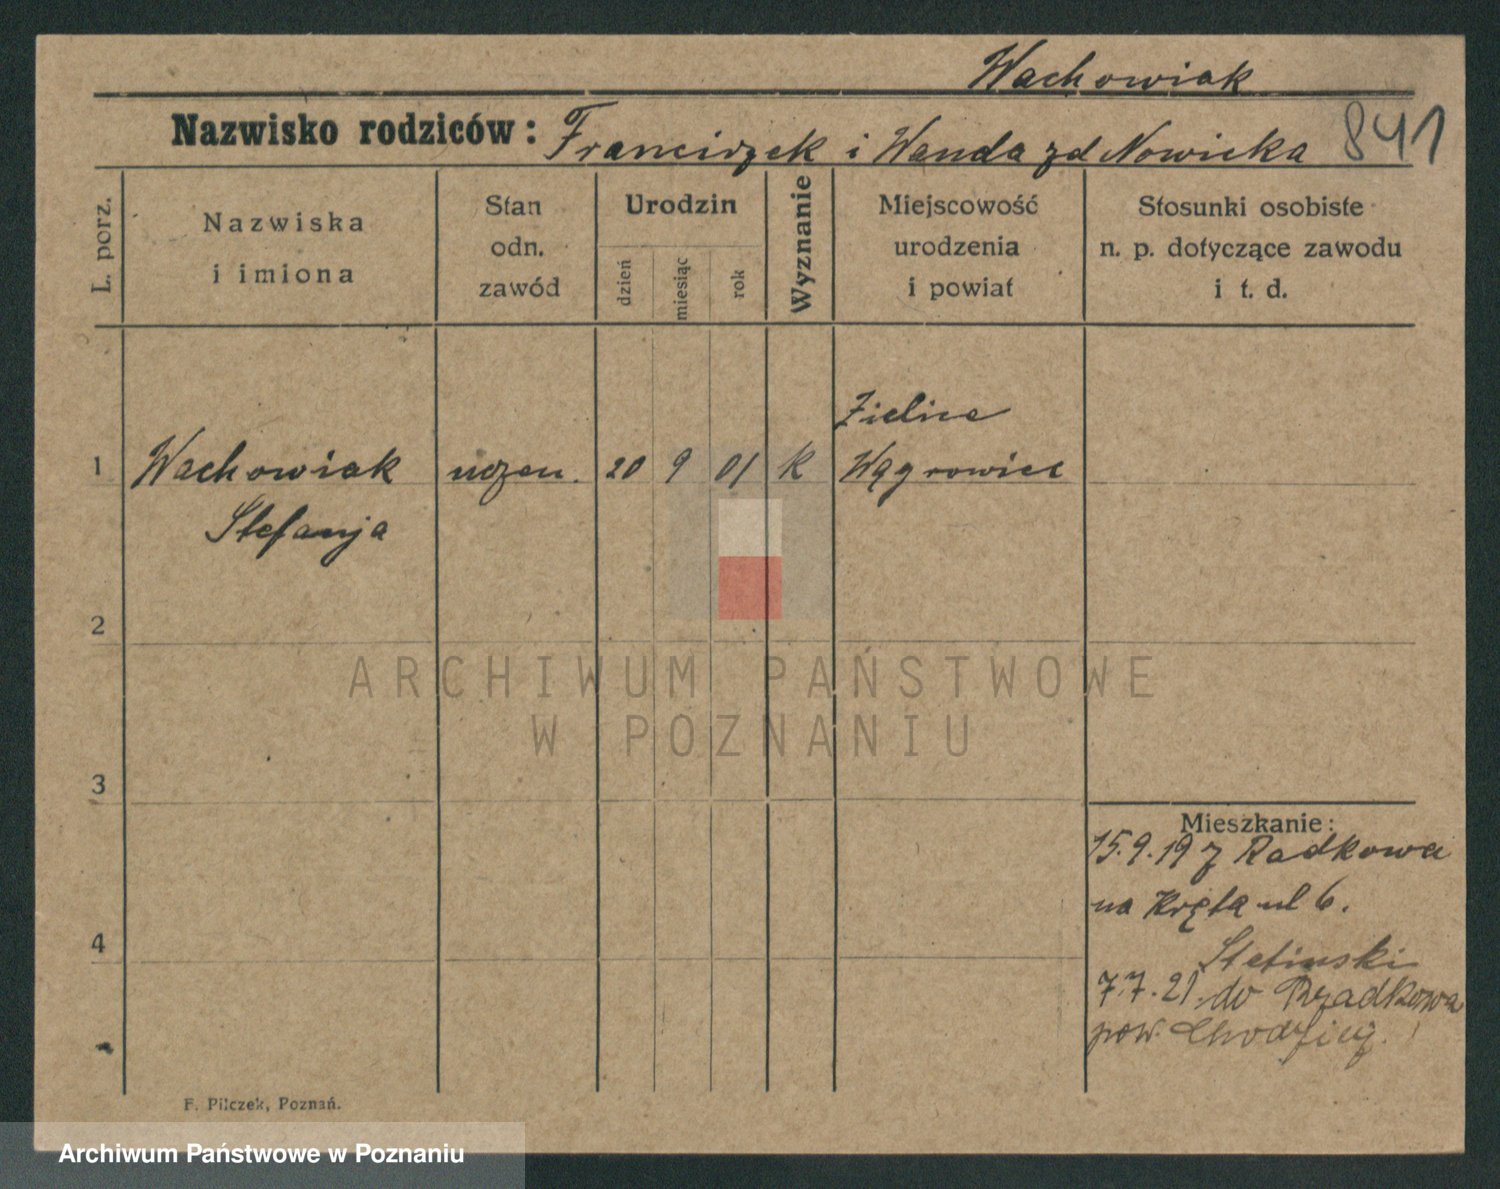 Wachowiak
Nazwisko rodziców: Franciszek i Wanda zd Nowicka 841
L. porz.
Nazwiska
i imiona
Stan
odn.
zawód
Urodzin
dzień
miesiąc
rok
Wyznanie
Miejscowość
urodzenia
i powiat
Stosunki osobiste
n. p. dotyczące zawodu
i t. d.
Zielice
1 Wachowiak uczen. 20 9 01 k Wągrowiec
Stefanja
2
ARCHIWUM PAŃSTWOWE
W POZNANIU
3
Mieszkanie:
15.9.19 z Radkowa
na Kręta ul 6.
4
7.7.21. do Rzadkowa
pow. Chodzież.
F. Pilczek, Poznań.
Archiwum Państwowe w Poznaniu